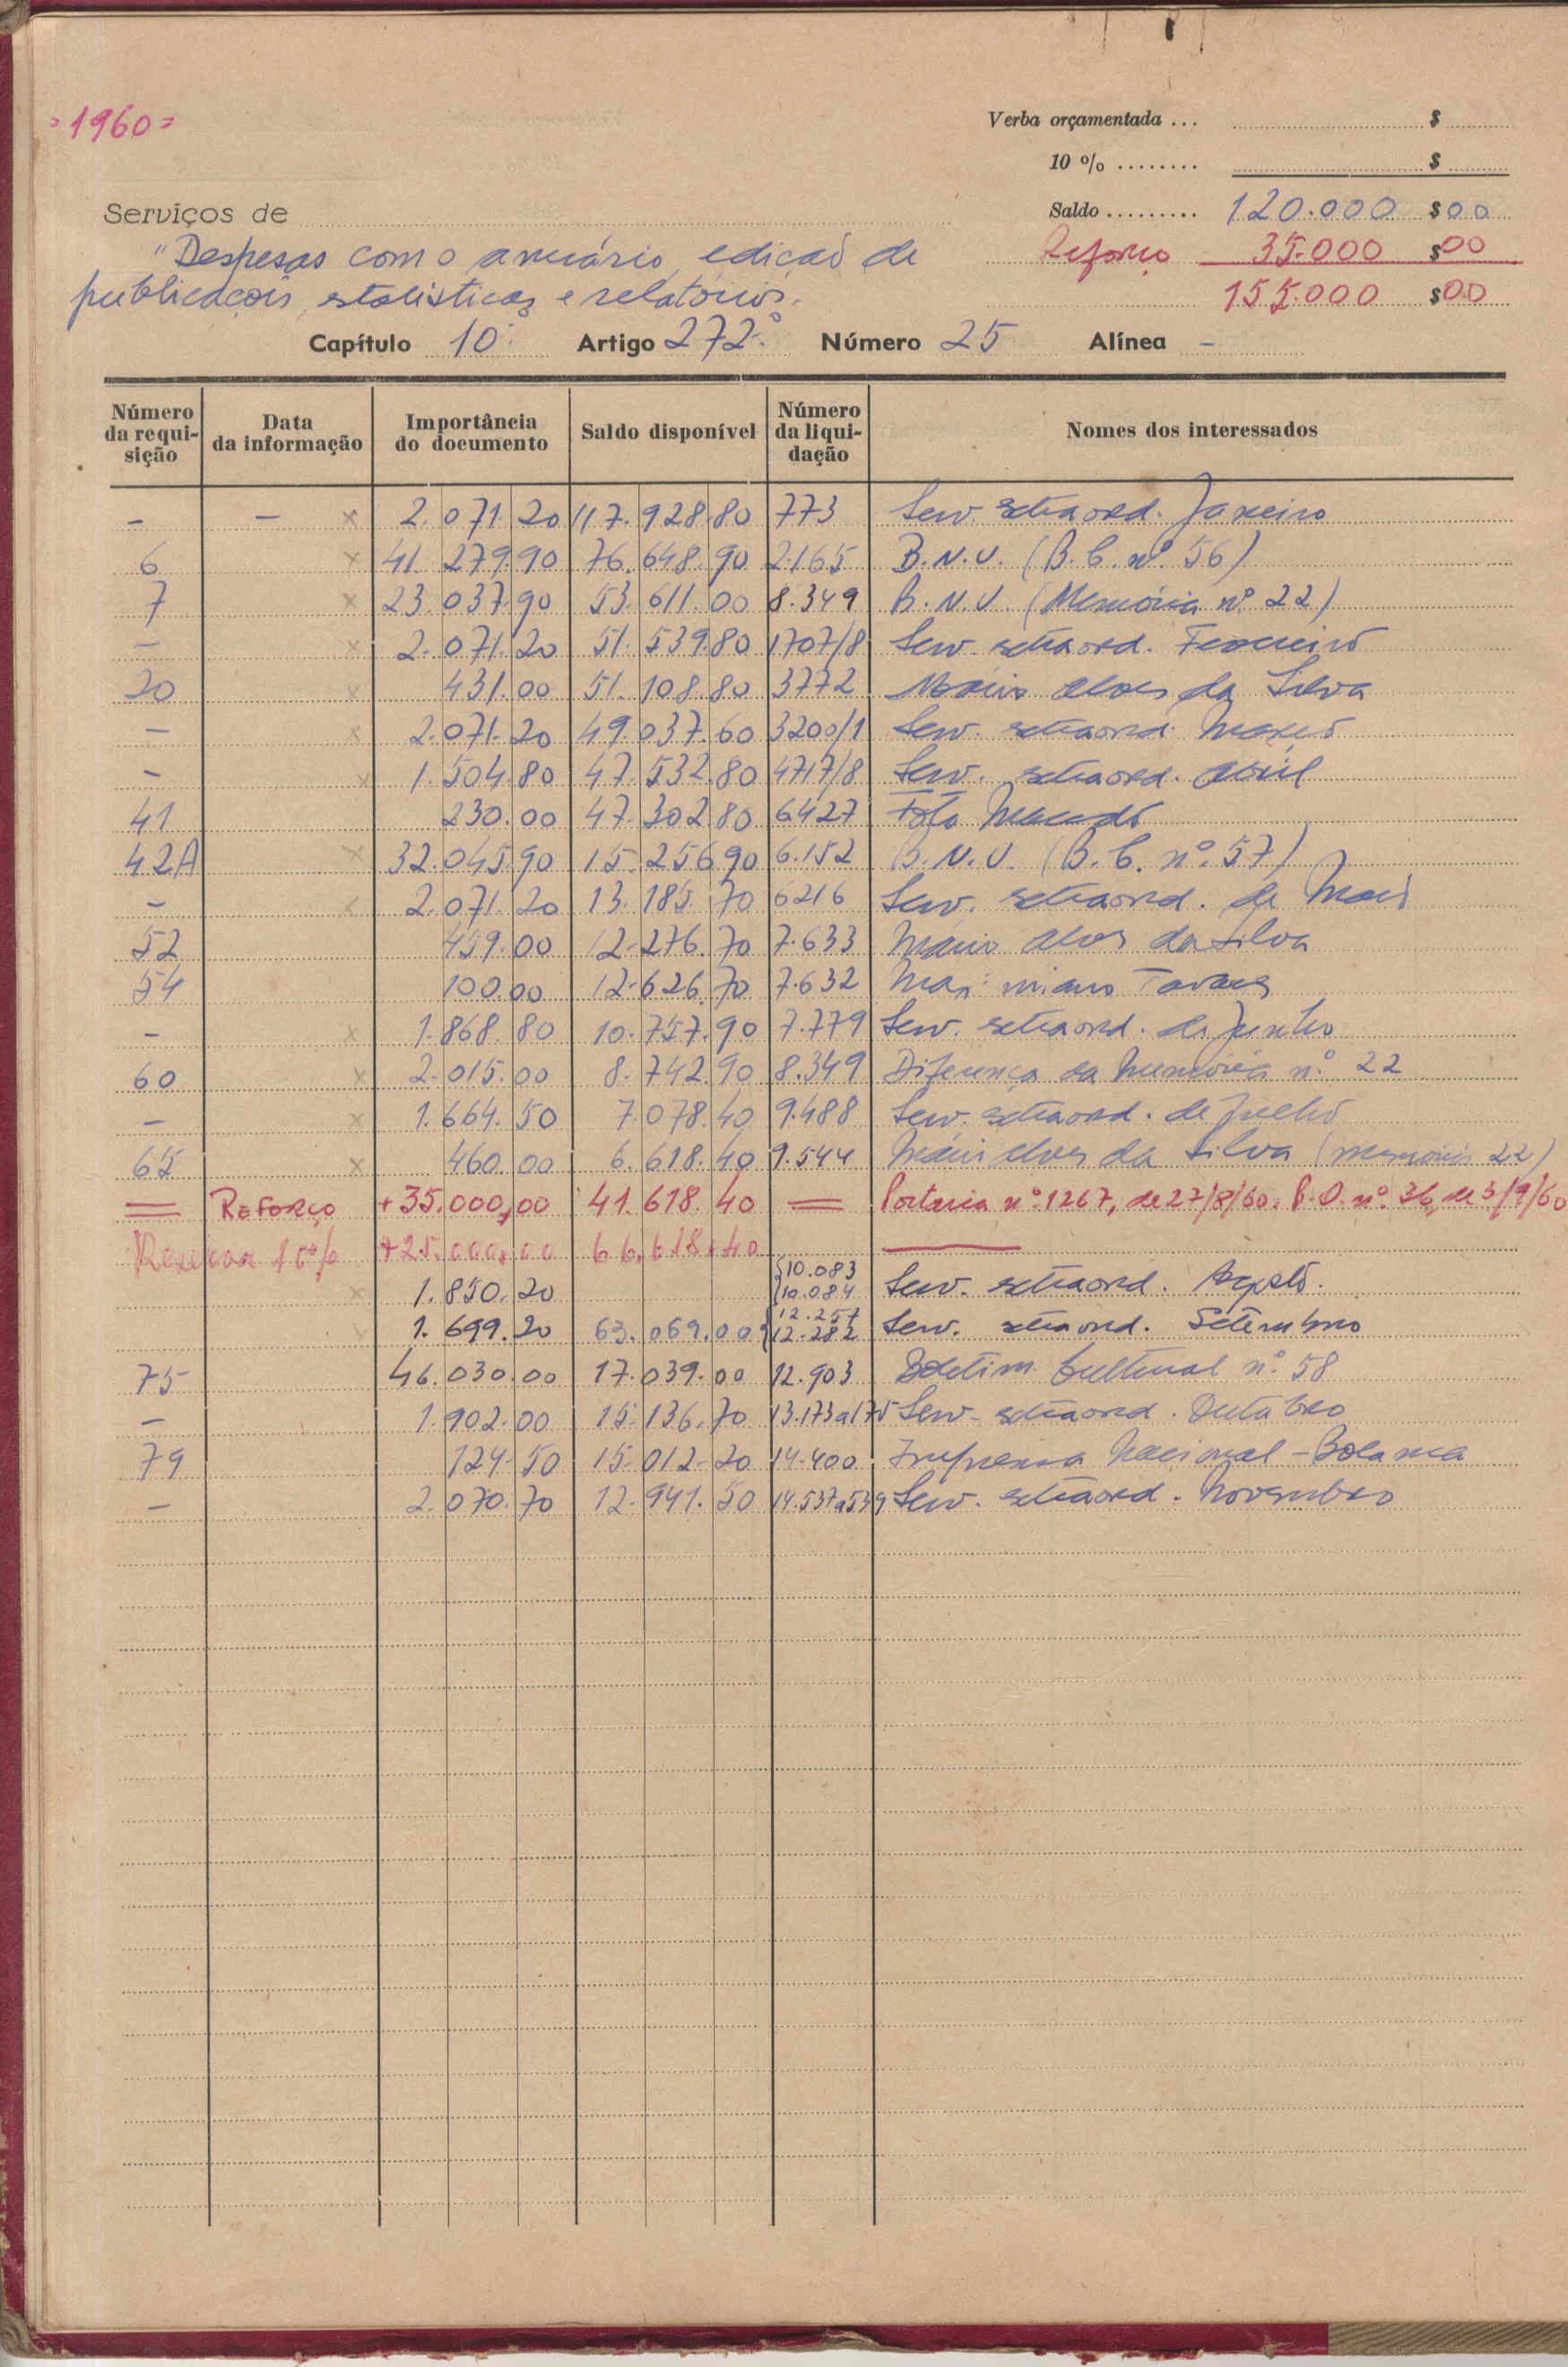 =1960=
Verba orçamentada ... $
10 % ........ $
Serviços de
Saldo ......... 120.000 $00
"Despesas com o anuário, edição de
Reforço 35.000 $00
publicações, estatísticas e relatórios.
155.000 $00
Capítulo 10.º Artigo 272.º Número 25 Alínea -
Número da requi-sição Data da informação Importância do documento Saldo disponível Número da liqui-dação Nomes dos interessados
- - x 2.071.20 117.928.80 773 Serv. extraord. Janeiro
6 x 41.279.90 76.648.90 2.165 B.N.U. (B.C. nº 56)
7 x 23.037.90 53.611.00 8.349 B.N.U. (Memória nº 22)
- x 2.071.20 51.539.80 1707/8 Serv. extraord. Fevereiro
20 x 431.00 51.108.80 3772 Mário Alves da Silva
- x 2.071.20 49.037.60 3200/1 Serv. extraord. Março
- x 1.504.80 47.532.80 4717/8 Serv. extraord. Abril
41 230.00 47.302.80 6427 Foto
42A x 32.045.90 15.256.90 6.152 B.N.U. (B.C. nº 57)
- x 2.071.20 13.185.70 6216 Serv. extraord. de Maio
52 459.00 12.276.70 7.633 Mário Alves da Silva
54 100.00 12.626.70 7.632 Tavares
- x 1.868.80 10.757.90 7.779 Serv. extraord. de Junho
60 x 2.015.00 8.742.90 8.349 Diferença da Memória nº 22
- x 1.664.50 7.078.40 9.488 Serv. extraord. de Julho
65 x 460.00 6.618.40 9.544 Mário Alves da Silva (memória 22)
= REFORÇO +35.000,00 41.618.40 = Portaria nº 1267, de 27/8/60. B.O. nº 36, de 3/9/60
Reserva 10% +25.000,00 66.618.40
x 1.850.20 {10.083 {10.084 Serv. extraord. Agosto.
x 1.699.20 63.069.00 {12.257 {12.282 Serv. extraord. Setembro
75 46.030.00 17.039.00 12.903 Boletim Cultural nº 58
- 1.902.00 15.136.70 13.173a175 Serv. extraord. Outubro
79 124.50 15.012.20 14.400 Imprensa Nacional - Bolama
- 2.070.70 12.941.50 14.537a539 Serv. extraord. Novembro